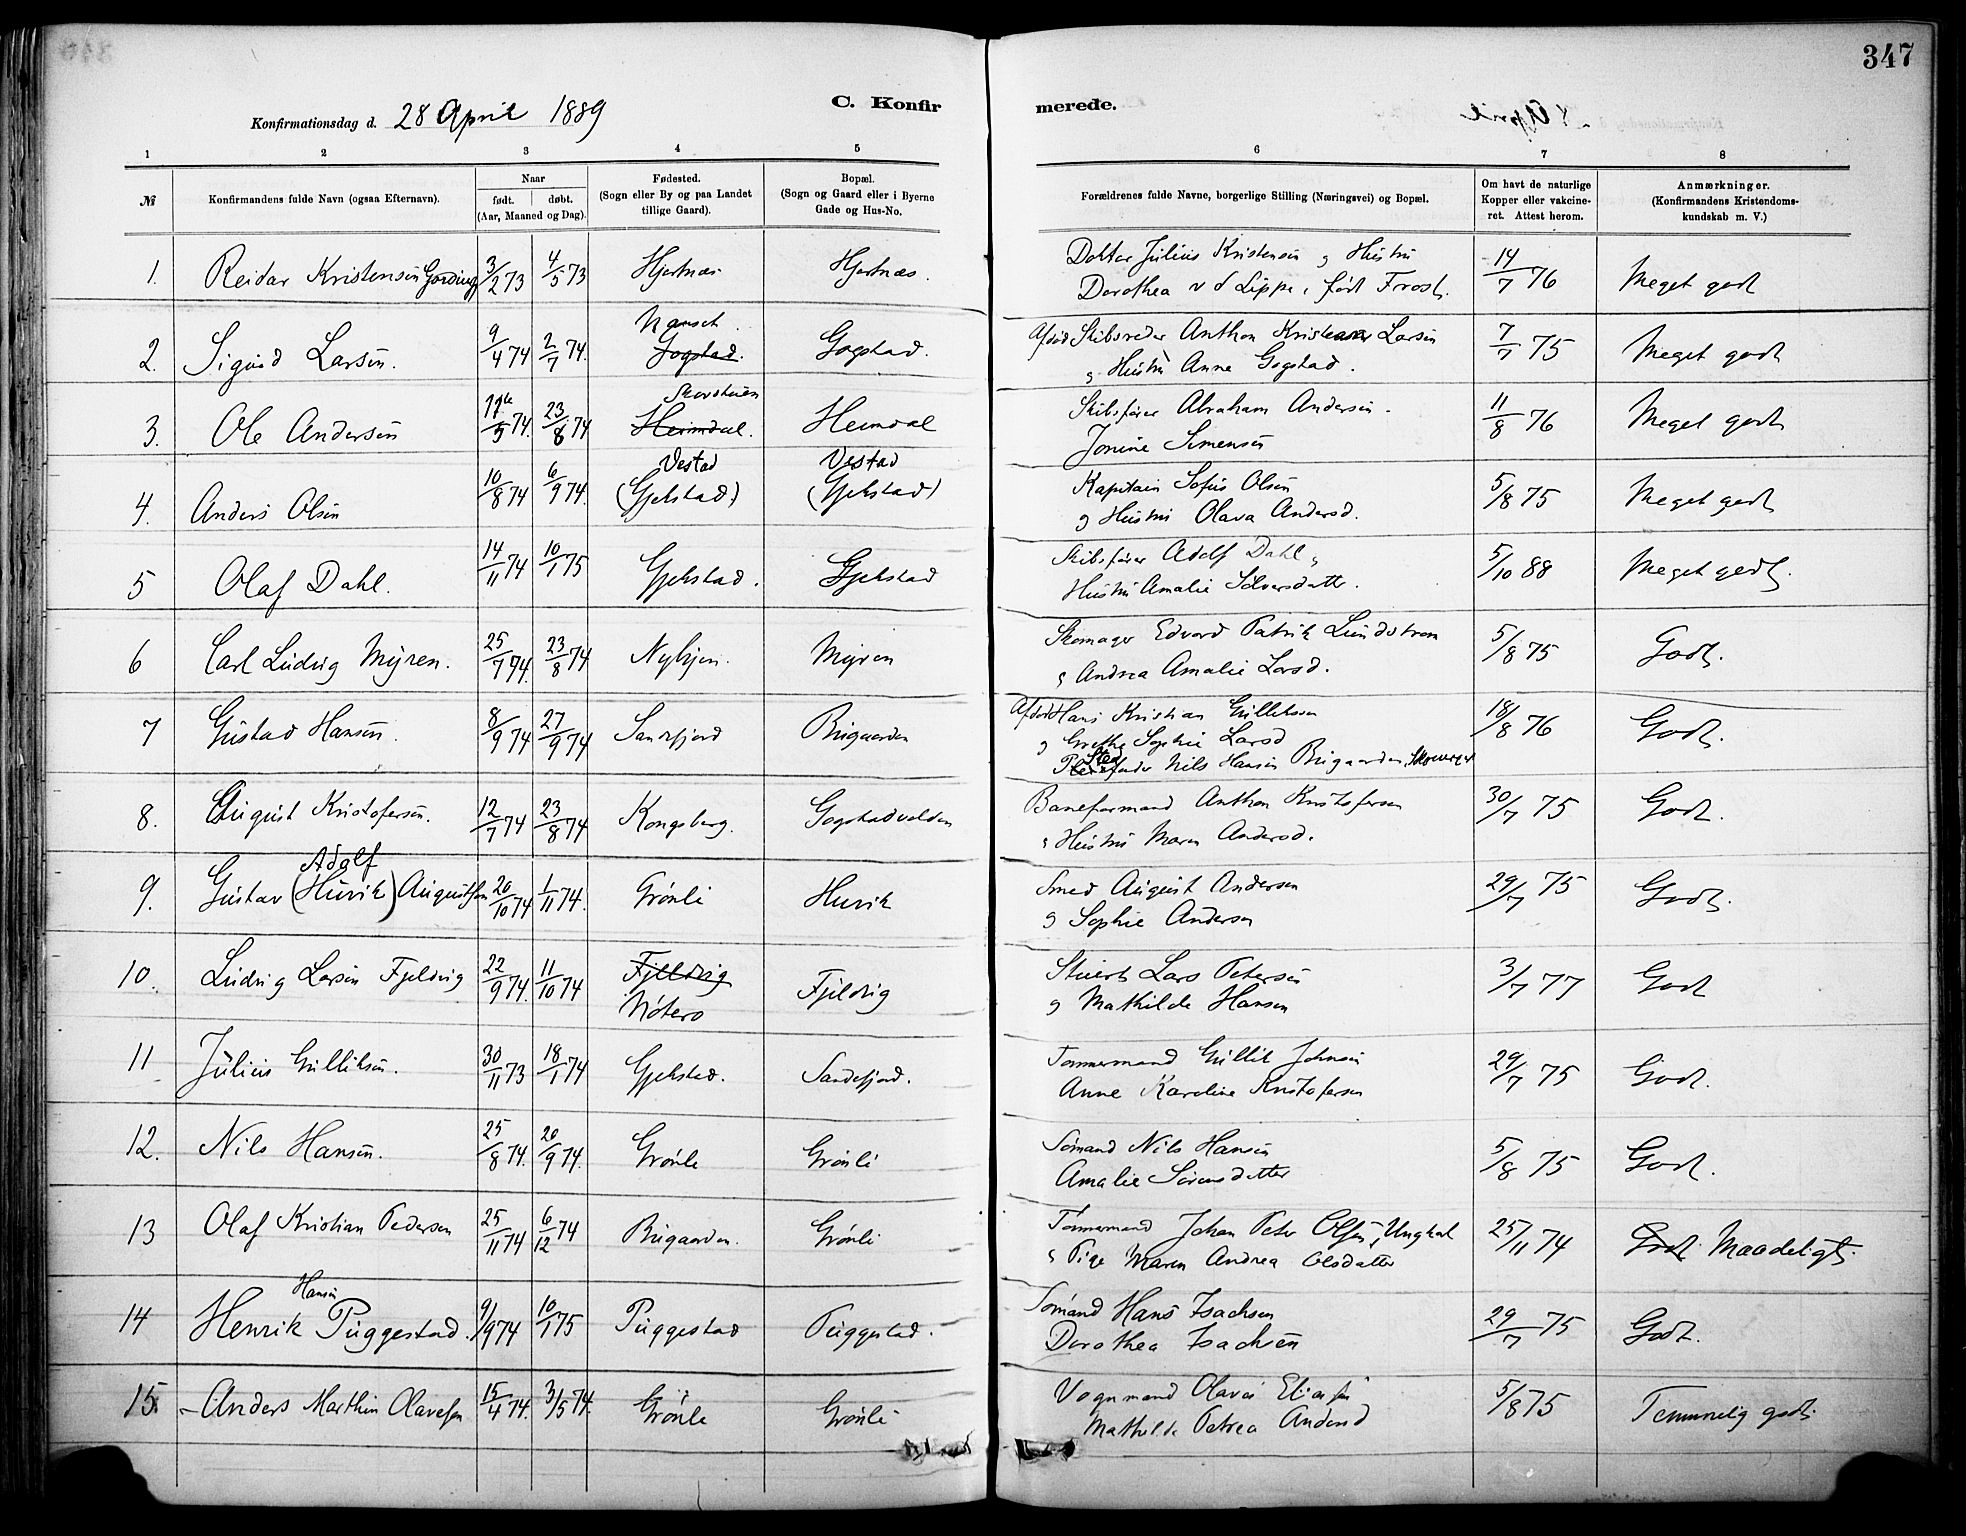 347
Konfirmationsdag d. 28 April 1889
C. Konfirmerede.
1 2 3 4 5 6 7 8
№
Konfirmandens fulde Navn (ogsaa Efternavn).
Naar
født. døbt.
(Aar, Maaned og Dag).
Fødested.
(Sogn eller By og paa Landet
tillige Gaard).
Bopæl.
(Sogn og Gaard eller i Byerne
Gade og Hus-No.
Forældrenes fulde Navne, borgerlige Stilling (Næringsvei) og Bopæl.
Om havt de naturlige
Kopper eller vakcine-
ret. Attest herom.
Anmærkninger.
(Konfirmandens Kristendoms-
kundskab m. V.)
1. Reidar Kristensen Gording 3/2 73 4/5 73 Hjertnæs Hjertnæs. Doktor Julius Kristensen og Hustru 14/7 76 Meget godt
Dorothea v d Lippe, født Frost.
2. Sigurd Larsen. 9/4 74 2/7 74. Gogstad. Gogstad. Afdød Skibsreder Anthon Kristensen Larsen 7/7 75 Meget godt
og Hustru Anne Gogstad.
3. Ole Andersen 74. 23/8 74 Heimdal. Heimdal Skibsfører Abraham Andersen. 11/8 76 Meget godt
Jonine Simensen
4. Anders Olsen 10/8 74 6/9 74. Vestad Vestad Kapitain Sofus Olsen 5/8 75 Meget godt
(Gjekstad) (Gjekstad) og Hustru Olava Andersd.
5 Olaf Dahl. 14/11 74 10/1 75 Gjekstad. Gjekstad Skibsfører Adolf Dahl og 5/10 88 Meget godt.
Hustru Amalie Sdatter.
6 Carl Ludvig Myren. 25/7 74. 23/8 74 Nybyen. Myren Skomager Edvard Patrik Lundstrøm 5/8 75 Godt.
og Andrea Amalie Larsd.
7 Gustav Hansen. 8/9 74 27/9 74 Sandefjord Brigaarden Afdød Hans Kristian Gulliksen 18/8 76 Godt.
og Grethe Sophie Larsd
Stedfader Nils Hansen Brigaarden,
8. August Kristofersen. 12/7 74 23/8 74 Kongsberg. Gogstadvolden Baneformand Anthon Kristofersen 30/7 75 Godt.
og Hustru Maren Andersd.
Adolf
9. Gustav (Huvik) Augustsen 26/10 74 1/11 74. Grønli Huvik Smed August Andersen 29/7 75 Godt.
og Sophie Andersen
10. Ludvig Larsen Fjeldvig 22/9 74. 11/10 74 Fjeldvig Fjeldvig Stuert Lars Petersen 3/7 77 Godt
Nøtterø og Mathilde Hansen
11 Julius Gulliksen. 30/11 73 18/1 74 Gjekstad. Sandefjord. Tømmermand Gullik Johnsen 29/7 75 Godt.
Anne Karoline Kristofersen
12. Nils Hansen. 25/8 74. 20/9 74. Grønli Grønli Sømand Nils Hansen 5/8 75 Godt.
Amalie Sørensdatter
13 Olaf Kristian Pedersen 25/11 74 6/12 74 Brigaarden. Grønli Tømmermand Johan Peter Olsen, Ungkarl 25/11 74 Godt. Maadeligt.
og Pige Maren Andrea Olsdatter
Hansen
14 Henrik Puggestad. 9/9 74 10/1 75 Puggestad Puggestad. Sømand Hans Isachsen 29/7 75 Godt.
Dorothea Isachsen
15. Anders Marthin Olavesen 15/4 74. 3/5 74. Grønli Grønli Vognmand Olaves Eliasen 5/8 75 Temmelig godt.
Mathilde Petrea Andersd